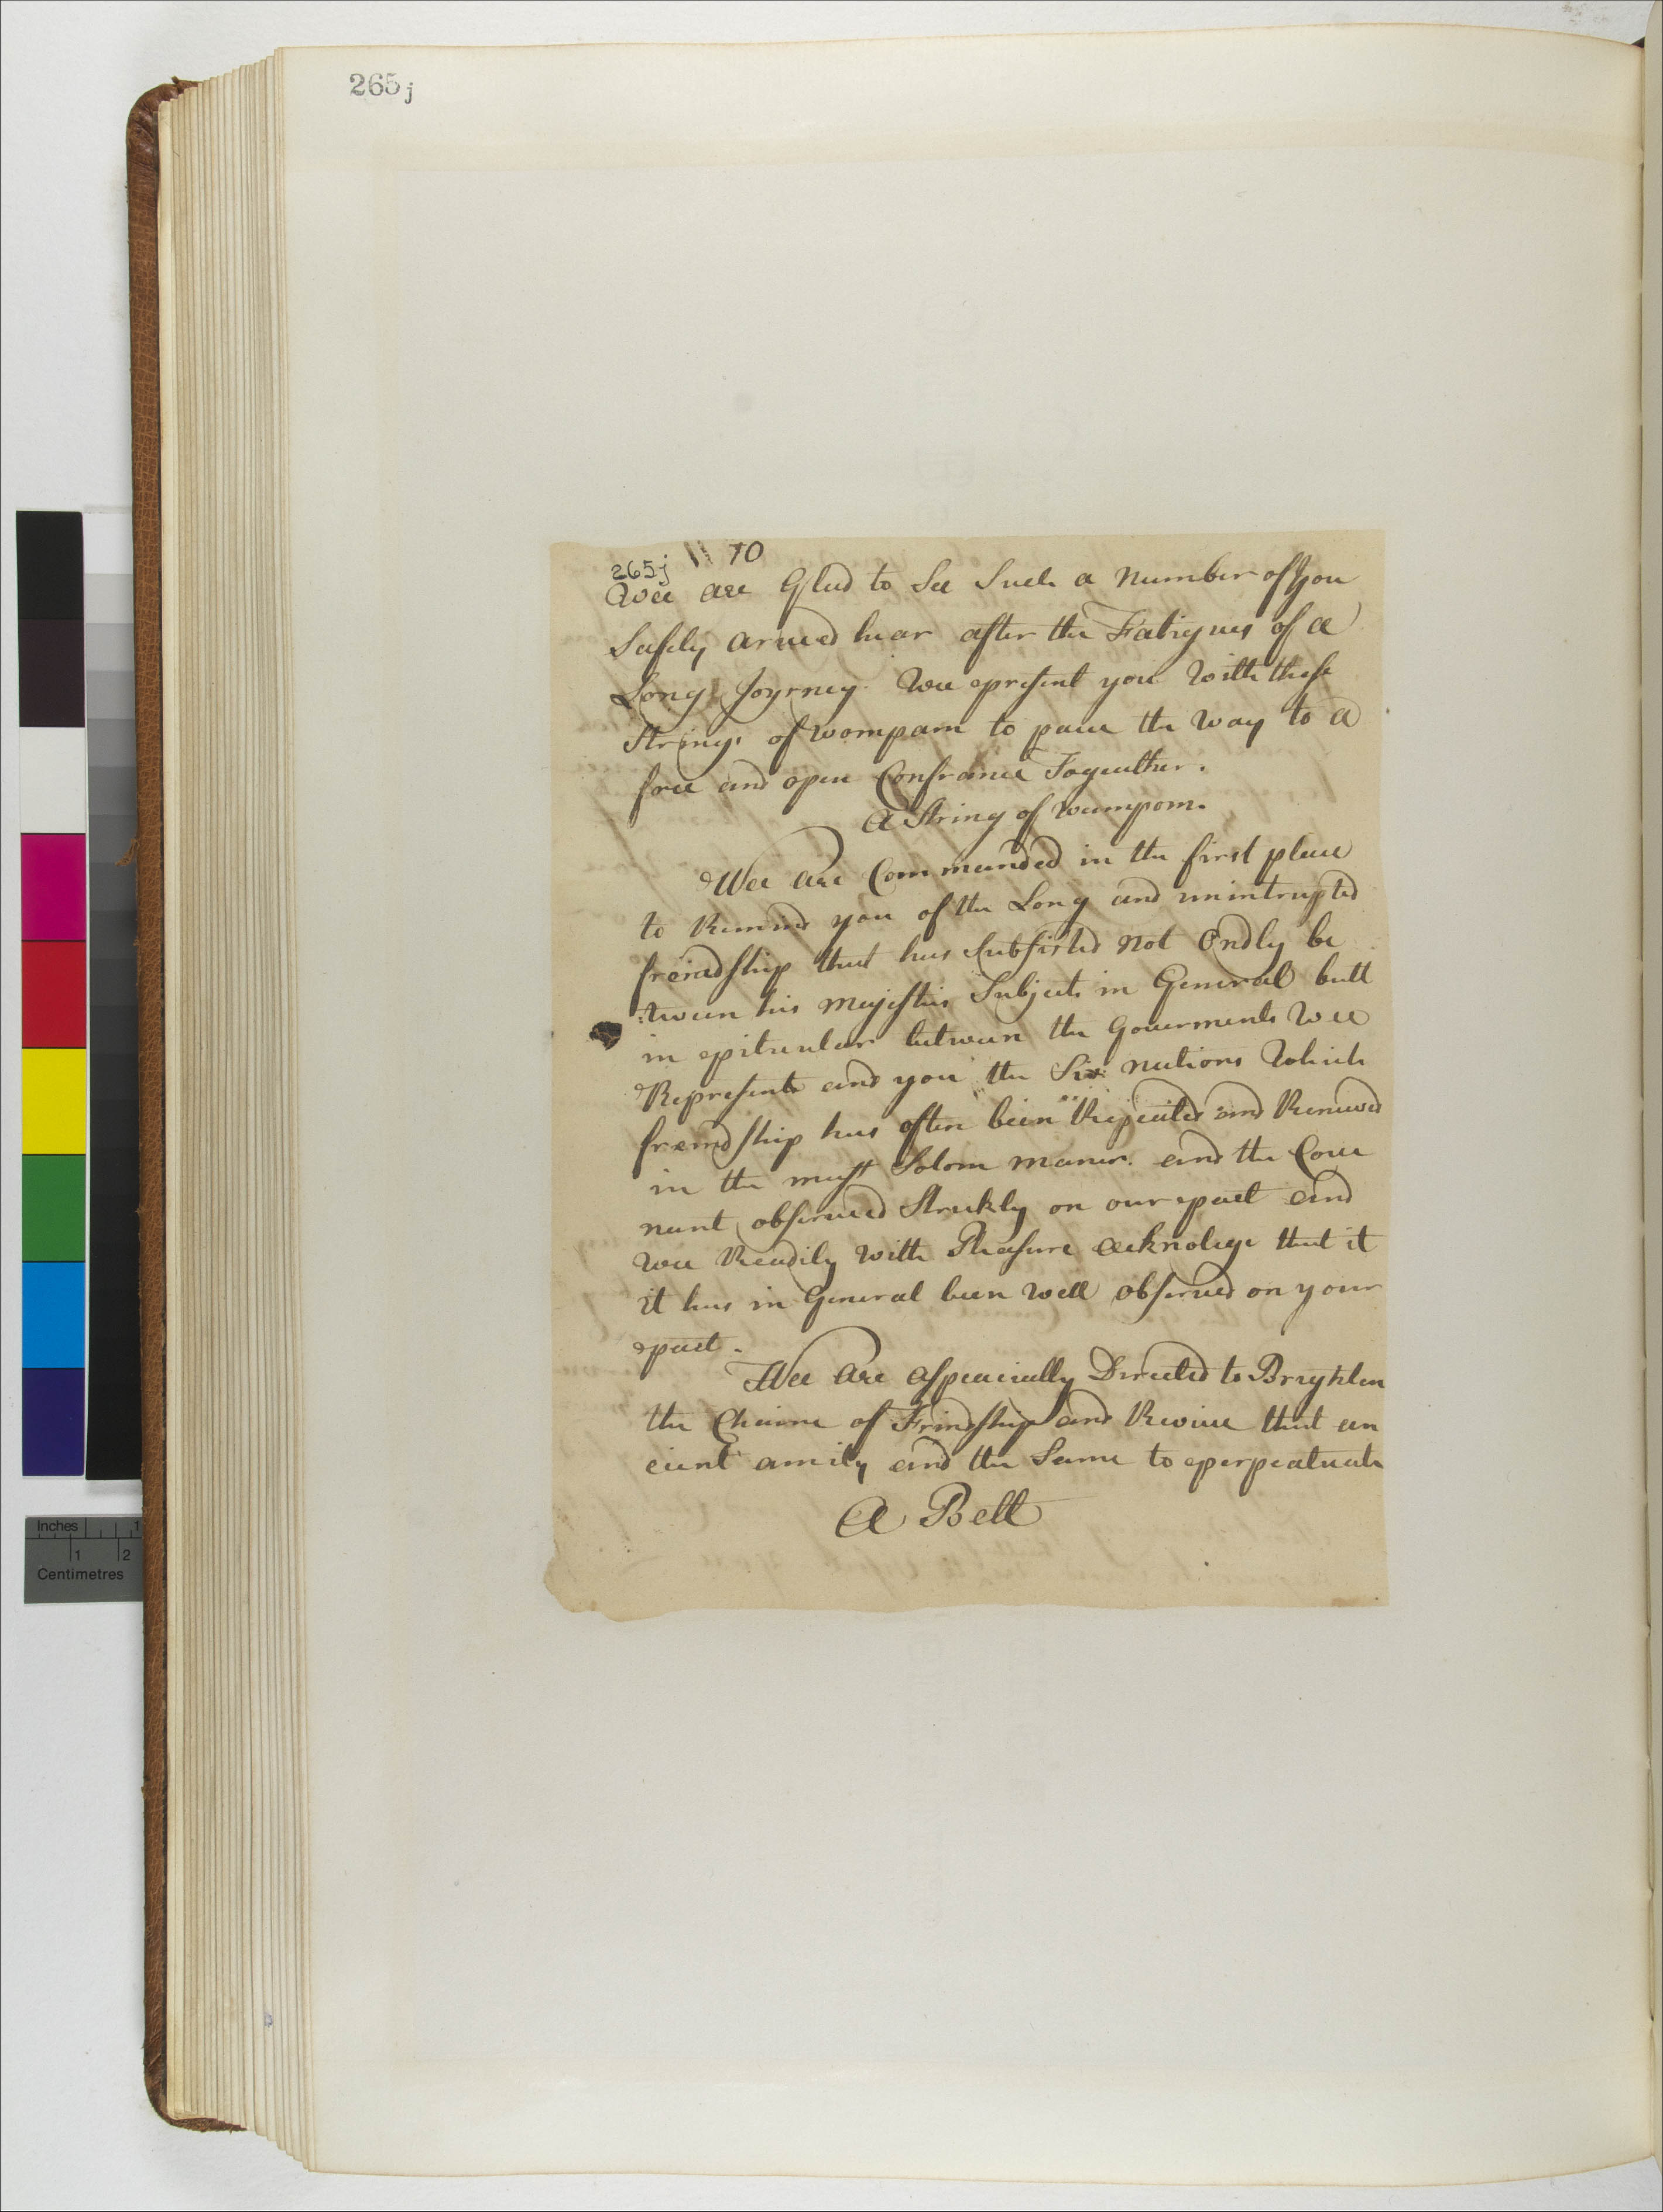 265j
265j 10
Wee are Glad to See Such a Number of You
Safely arived hear after the Fatigues of a
Long Joyrney. Wee present you With these
Strings of Wompam to pave the Way to a
free and open Confrance Togeather.
A String of Wampom.
Wee are Commanded in the first place
to Remind you of the Long and unintrupted
freindship that has Subsisted Not Ondly be
:tween his Majesties Subjects in General butt
in pituculer between the Goverments Wee
Represente and you the Six Nations Which
freindship has often been Repeated and Renewed
in the most Solom maner. and the Cove
nant observed Stricktly on our part and
wee Readily With Pleasure acknolege that it
it has in General been Well observed on your
part.
Wee are aspeacially Directed to Brighten
the Chaine of Frindship and Revive that an
cient amity and the Same to perpeatuate
A Belt
Inches 1
1 2
Centimetres